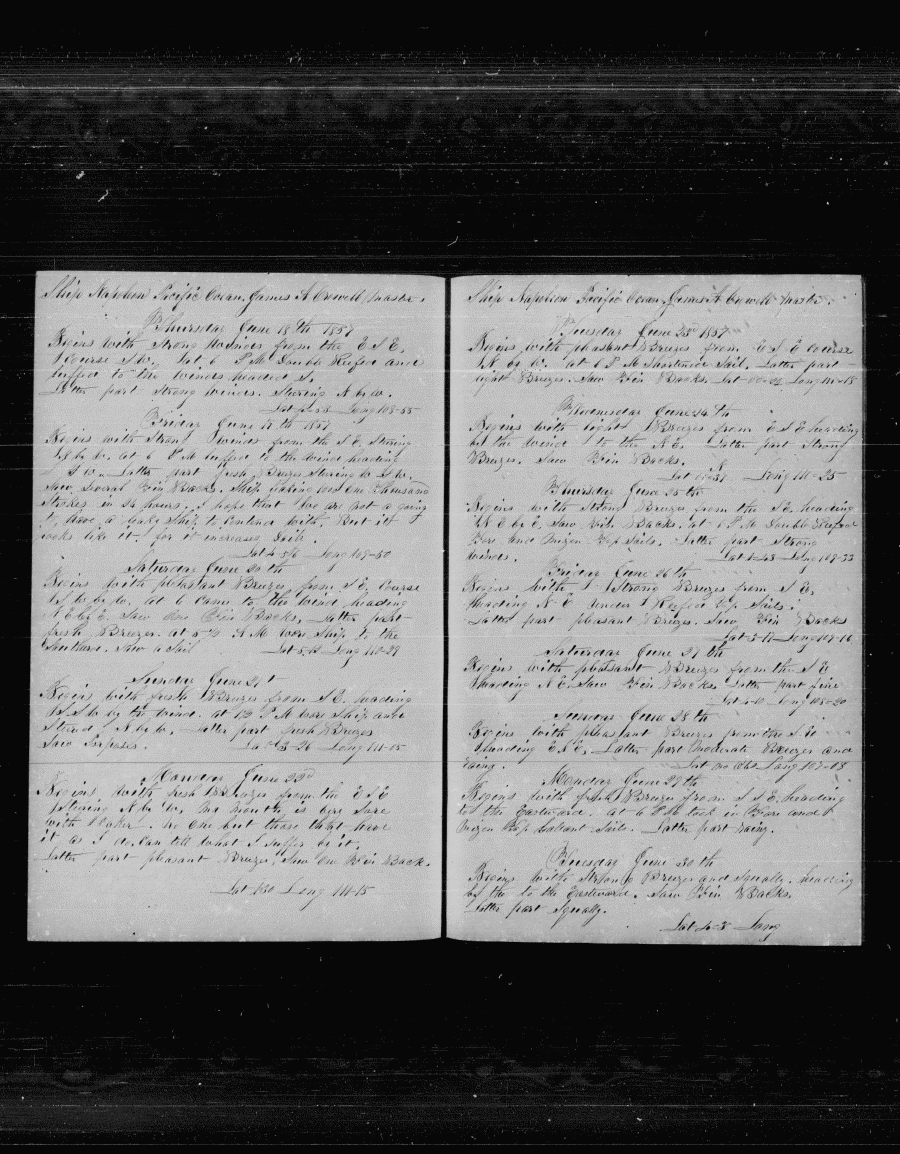 Ship Napoleon Pacific Ocean, James A Crowell Master.
Thursday June 18th 1857
Begins with Strong Winds from the E S E,
Course S W. At 6 P M Double Reefed and
luffed to the wind headed S,
Latter part Strong winds. Stering N by W.
Long 108-55
Friday June 19th 1857
Begins with Strong winds from the S E, Stering
by W. at 6 P M luffed to the wind heading
S W. Latter part fresh Breezes Stering W S W.
Saw Several Fin Backs. Ship making over One Thousand
Strokes in 24 hours. I hope that We are not a going
to have a leaky Ship to Contend with But it
looks like it for it increases daily.
Lat 4-56 Long 109-50
Saturday June 20th
Begins with pleasant Breezes from S E, Course
by W. at 6 came to the Wind heading
N E by E. Saw One Fin Back, Latter part
fresh Breezes. at A M wore Ship to the
Southard. Saw a Sail Lat 5- Long 110-29
Sunday June 21st
Begins with fresh Breezes from S E. heading
S S W by the Wind. at 12 P M wore Ship and
Steered N by W. Latter part fresh Breezes
Saw Porpoises. Lat 3-26 Long 111-05
Monday June 22nd
Begins with fresh Breezes from the E S E
Stering N by W. my mouth is very Sore
with Canker. no One but those that have
it as I do can tell what I suffer by it.
Latter part pleasant Breezes, Saw One Fin Back.
Lat 1-30 Long 111-15
Ship Napoleon Pacific Ocean, James A Crowell Master.
Tuesday June 23rd 1857
Begins with pleasant Breezes from E S E Course
N by W. at 6 P M Shortened Sail, Latter part
light Breezes. Saw Fin Backs. Lat 00-22 Long 111-18
Wednesday June 24th
Begins with light Breezes from E S E heading
by the wind to the N E. Latter part Strong
Breezes. Saw Fin Backs.
Long 110-25
Thursday June 25th
Begins with Strong Breezes from the S E heading
N E by E. Saw Fin Backs. at 6 P M Double Reefed
Fore and Mizen Top Sails. Latter part Strong
winds. Lat 1-43 Long 109-33
Friday June 26th
Begins with Strong Breezes from S E,
heading N E under Reefed Top Sails.
Latter part pleasant Breezes. Saw Fin Backs
Saturday June 27th
Begins with pleasant Breezes from the S E
heading N E. Saw Fin Backs. Latter part fine
Long 108-20
Sunday June 28th
Begins with pleasant Breezes from the S E
heading E N E, Latter part Moderate Breezes and
raing. Lat no Obs Long 107-13
Monday June 29th
Begins with fresh Breezes from S S E heading
to the Eastward. at 6 P M took in Fore and
Mizen Top Gallant Sails. Latter part raing.
Tuesday June 30th
Begins with Strong Breezes and Squally. heading
by the to the Eastward. Saw Fin Backs.
Latter part Squally.
Lat 4-3 Long